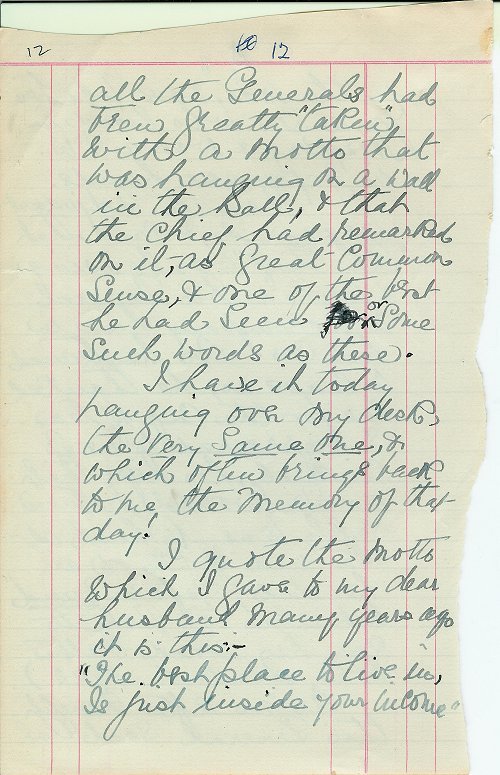 12 12
all the Generals had
been greatly "taken"
with a Motto that
was hanging on a wall
in the Hall, & that
the Chief had remarked
on it, as great Common
Sense, & one of the best
he had Seen or Some
Such words as these.
I have it today
hanging over my desk,
the very Same one, &
which often brings back
to me the Memory of that
day!
I quote the Motto
Which I gave to my dear
husband Many years ago
it is this:-
"The best place to live in,
Is just inside your income"